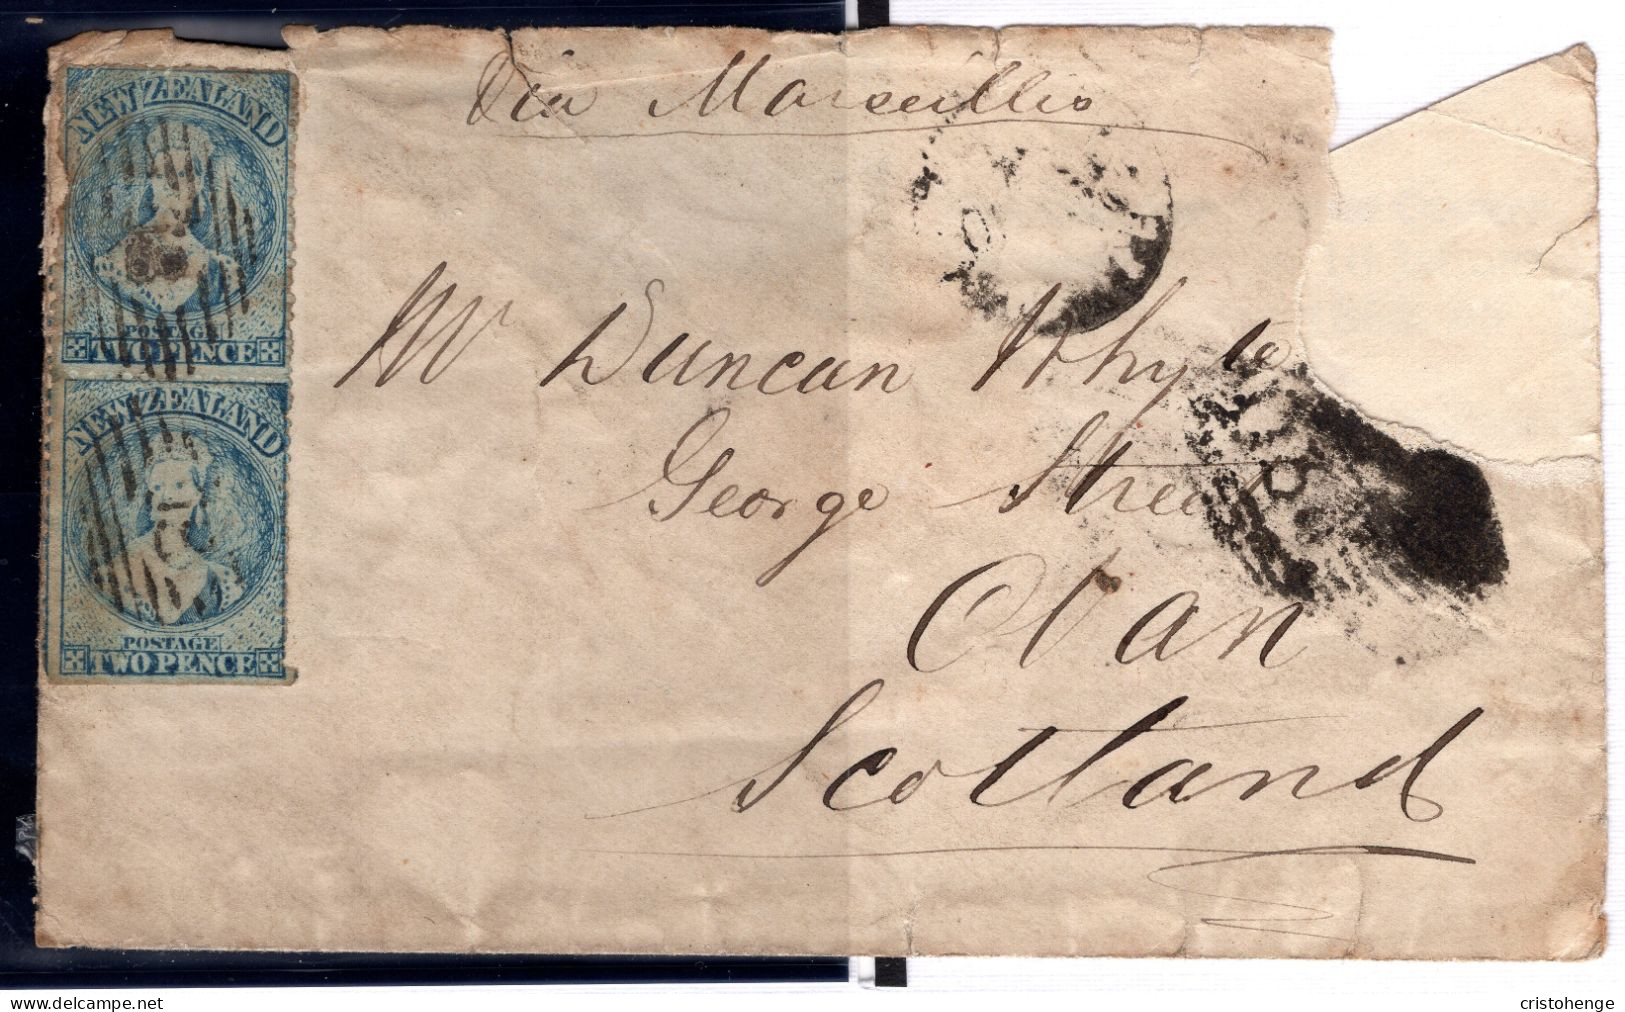 Via Marseilles
NEW ZEALAND
POSTAGE
TWO PENCE
NEW ZEALAND
POSTAGE
TWO PENCE
Mr Duncan Whyte
George Street
Oban
Scotland
cristohenge